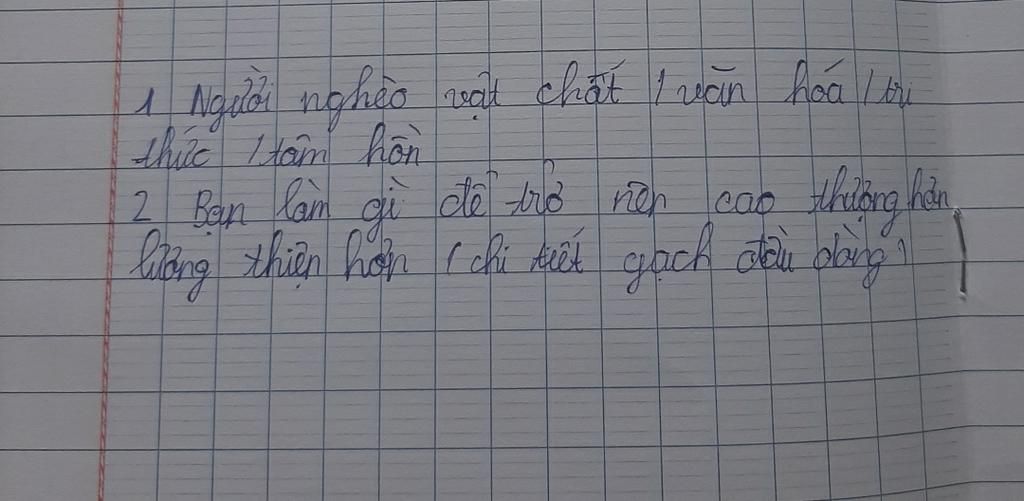 1 Người nghèo vật chất / văn hoá / tri
thức / tâm hồn
2 Bạn làm gì để trở nên cao thượng hơn
lương thiện hơn ( chi tiết gạch đầu dòng )